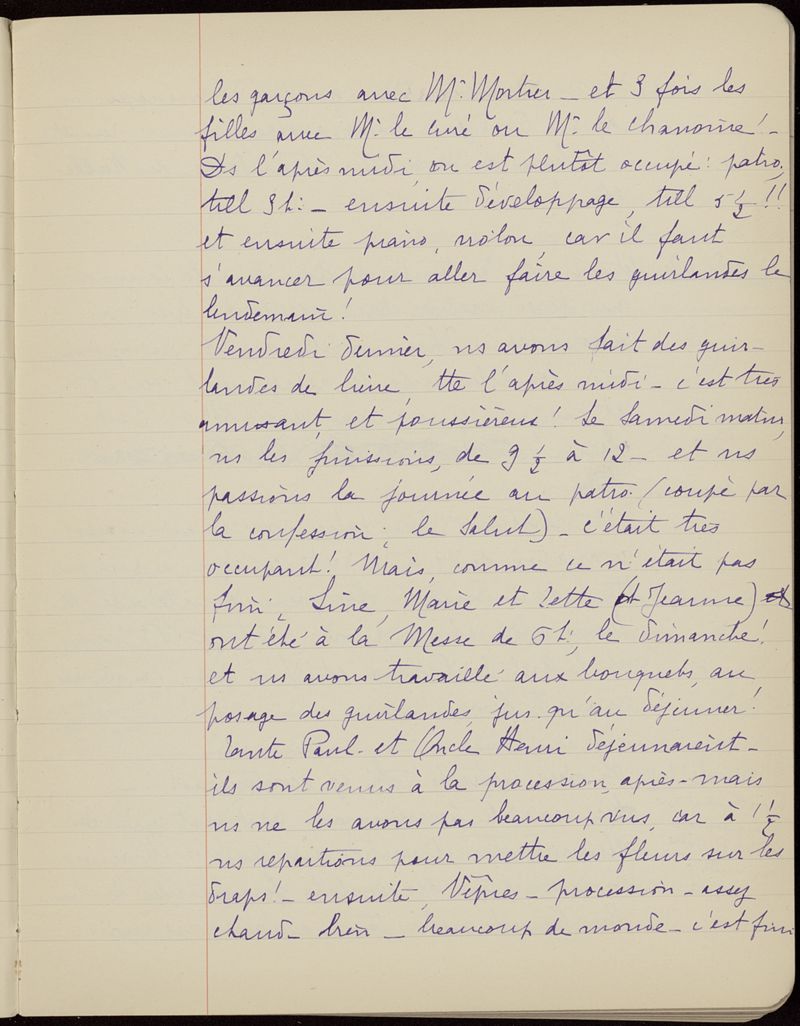 les garçons avec Mr Mortier – et 3 fois les
filles avec Mr le curé ou Mr le chanoine! –
Ds l'après midi, on est plutôt occupé: patro,
till 3h: – ensuite développage, till 5 1/2!!
et ensuite piano, violon, car il faut
s'avancer pour aller faire les guirlandes le
lendemain!
Vendredi dernier, ns avons fait des guir-
landes de lierre, tte l'après midi – c'est très
amusant, et poussiéreux! Le Samedi matin,
ns les finissions, de 9 1/2 à 12 – et ns
passions la journée au patro. (coupé par
la confession, le Salut) – c'était très
occupant! Mais, comme ce n'était pas
fini, Line, Marie et Zette (et Jeanne)
ont été à la Messe de 6h:, le dimanche!
et ns avons travaillé aux bouquets, au
posage des guirlandes, jus-qu'au déjeuner!
Tante Paul – et Oncle Henri déjeunaient –
ils sont venus à la procession, après – mais
ns ne les avons pas beaucoup vus, car à 1 1/2
ns repartions pour mettre les fleurs sur les
draps! – ensuite, Vêpres – procession – assez
chaud – bien – beaucoup de monde – c'est fini